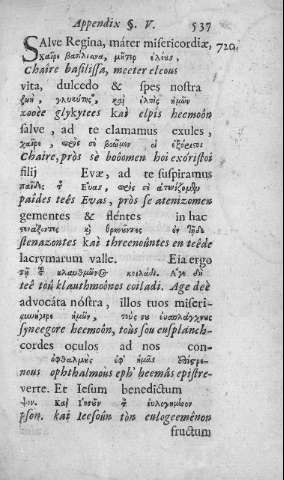 Appendix §. V. 537
SAlve Regina, máter misericordiæ, 720.
Χαῖρε βασίλισσα, μῆτερ ἐλέους,
Chaire basilissa, meeter eleous
vita, dulcedo & spes nostra
ζωὴ, γλυκύτης, καὶ ἐλπὶς ἡμῶν
xooée glykytees kaì elpìs heemoôn
salve, ad te clamamus exules,
χαῖρε, πρὸς σὲ βοῶμεν οἱ ἐξόριστοι
Chaire, pròs sè boóomen hoi exóristoi
filij Evæ, ad te suspiramus
παῖδες τῆς Εὔας, πρὸς σὲ ἀτενίζομεν
paîdes teês Evas, pròs se atenízomen
gementes & flentes in hac
στενάζοντες καὶ θρηνοῦντες ἐν τῇδε
stenazontes kaì threenoûntes en teêde
lacrymarum valle. Eia ergo
τῇ τοῦ κλαυθμῶνος κοιλάδι. Ἄγε δὴ
teê toû klauthmoônos coiladi. Age deè
advocáta nóstra, illos tuos miseri-
συνήγορε ἡμῶν, τούς σου εὐσπλάγχνους
syneegore heemoôn, toùs sou eusplanch-
cordes oculos ad nos con-
ὀφθαλμοὺς ἐφ' ἡμᾶς ἐπίστρε-
nous ophthalmous eph' heemâs epistre-
verte. Et Iesum benedictum
ψον. Καὶ Ἰησοῦν τὸν εὐλογημένον
pson. kaì Ieesoûn tòn eulogeeménon
fructum